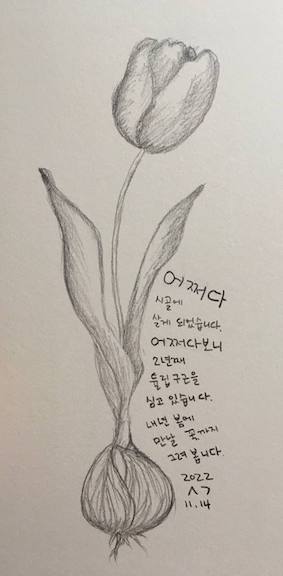 어쩌다
시골에
살게 되었습니다.
어쩌다보니
2년째
튤립구근을
심고 있습니다.
내년 봄에
만날 꽃까지
그려 봅니다.
2022
ㅅㄱ
11.14